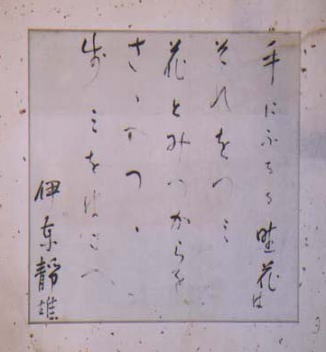 手にふるゝ野花は
それをつミ
花とみづからを
さゝへつゝ
歩ミをはこべ
伊東靜雄